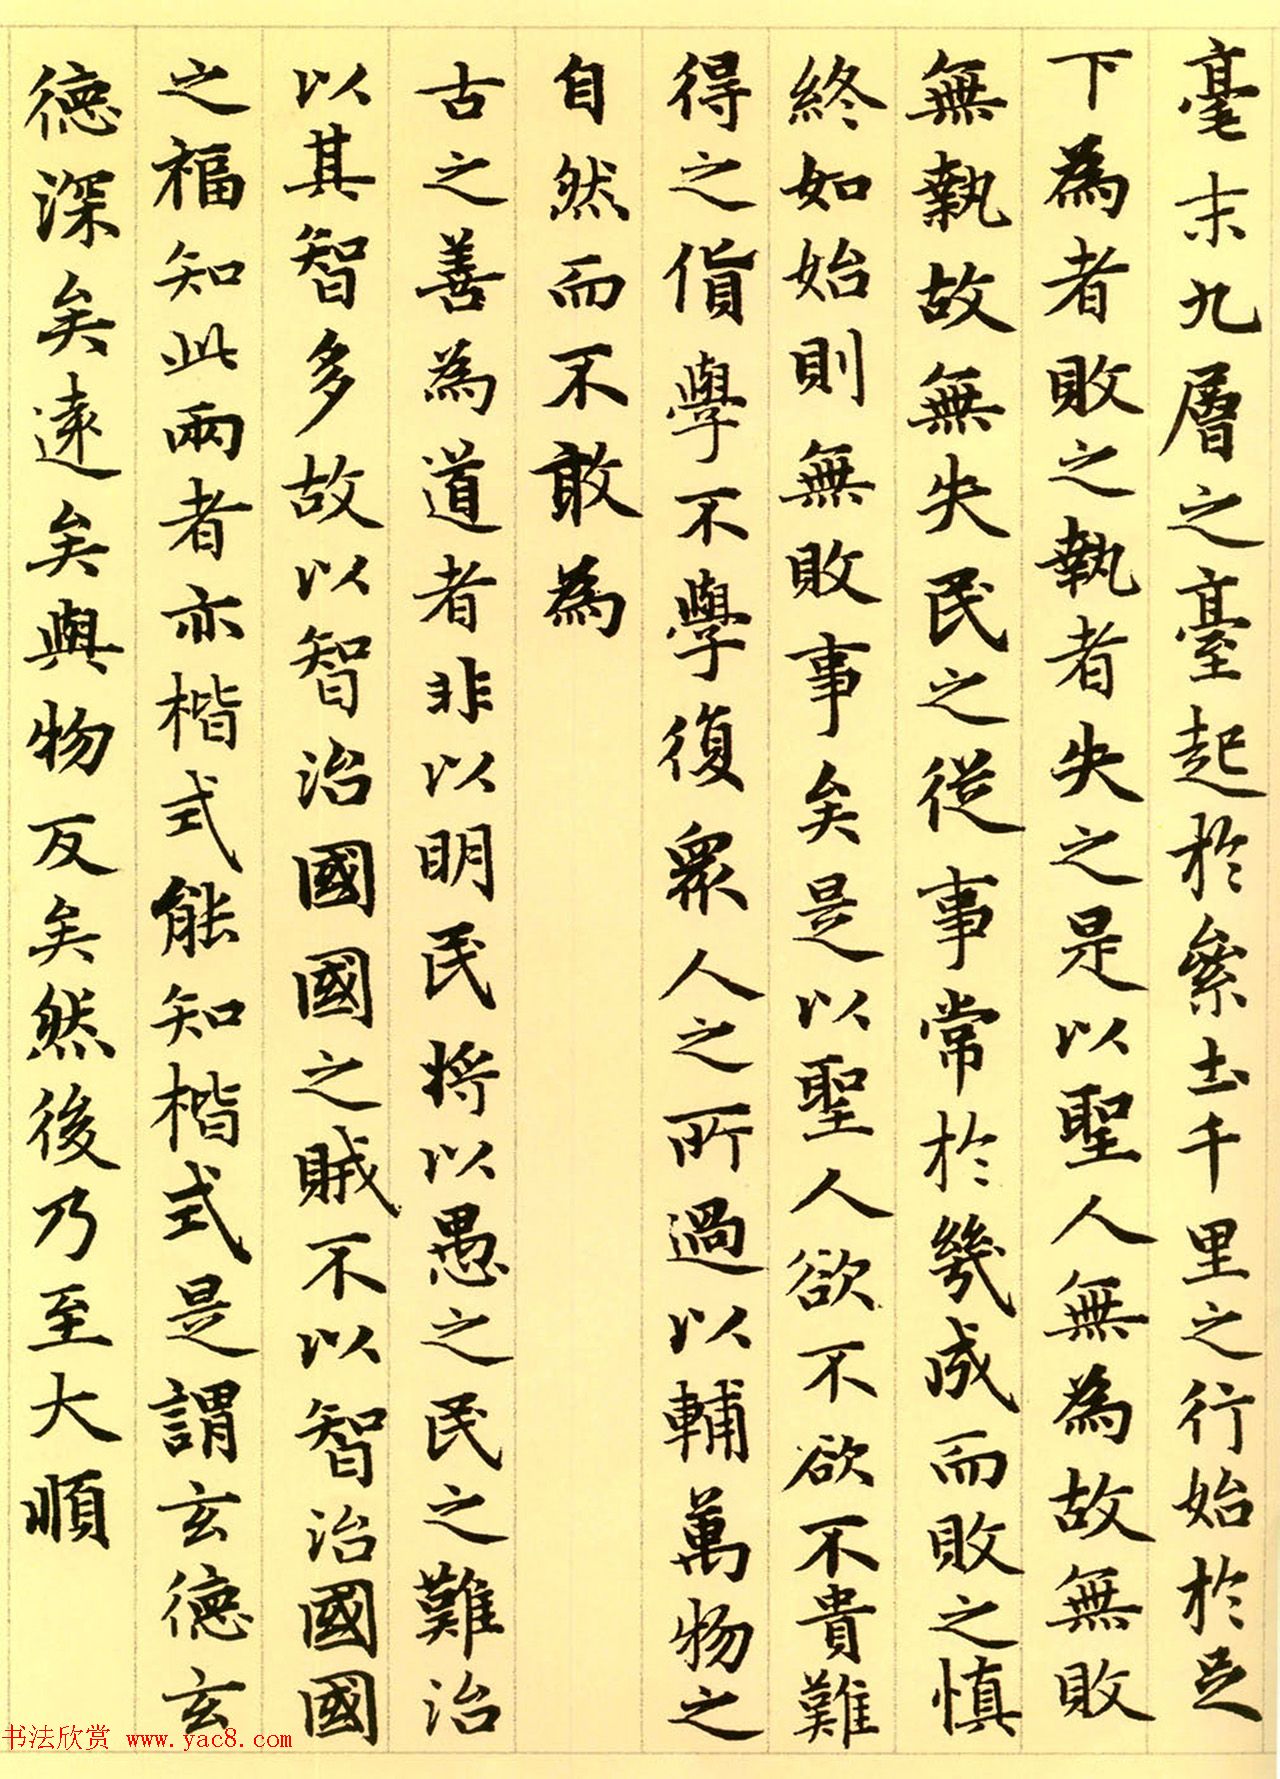 毫末九層之臺起於絫土千里之行始於足
下為者敗之執者失之是以聖人無為故無敗
無執故無失民之從事常於幾成而敗之慎
終如始則無敗事矣是以聖人欲不欲不貴難
得之貨學不學復眾人之所過以輔萬物之
自然而不敢為
古之善為道者非以明民將以愚之民之難治
以其智多故以智治國國之賊不以智治國國
之福知此兩者亦楷式能知楷式是謂玄德玄
德深矣遠矣與物反矣然後乃至大順
书法欣赏 www.yac8.com